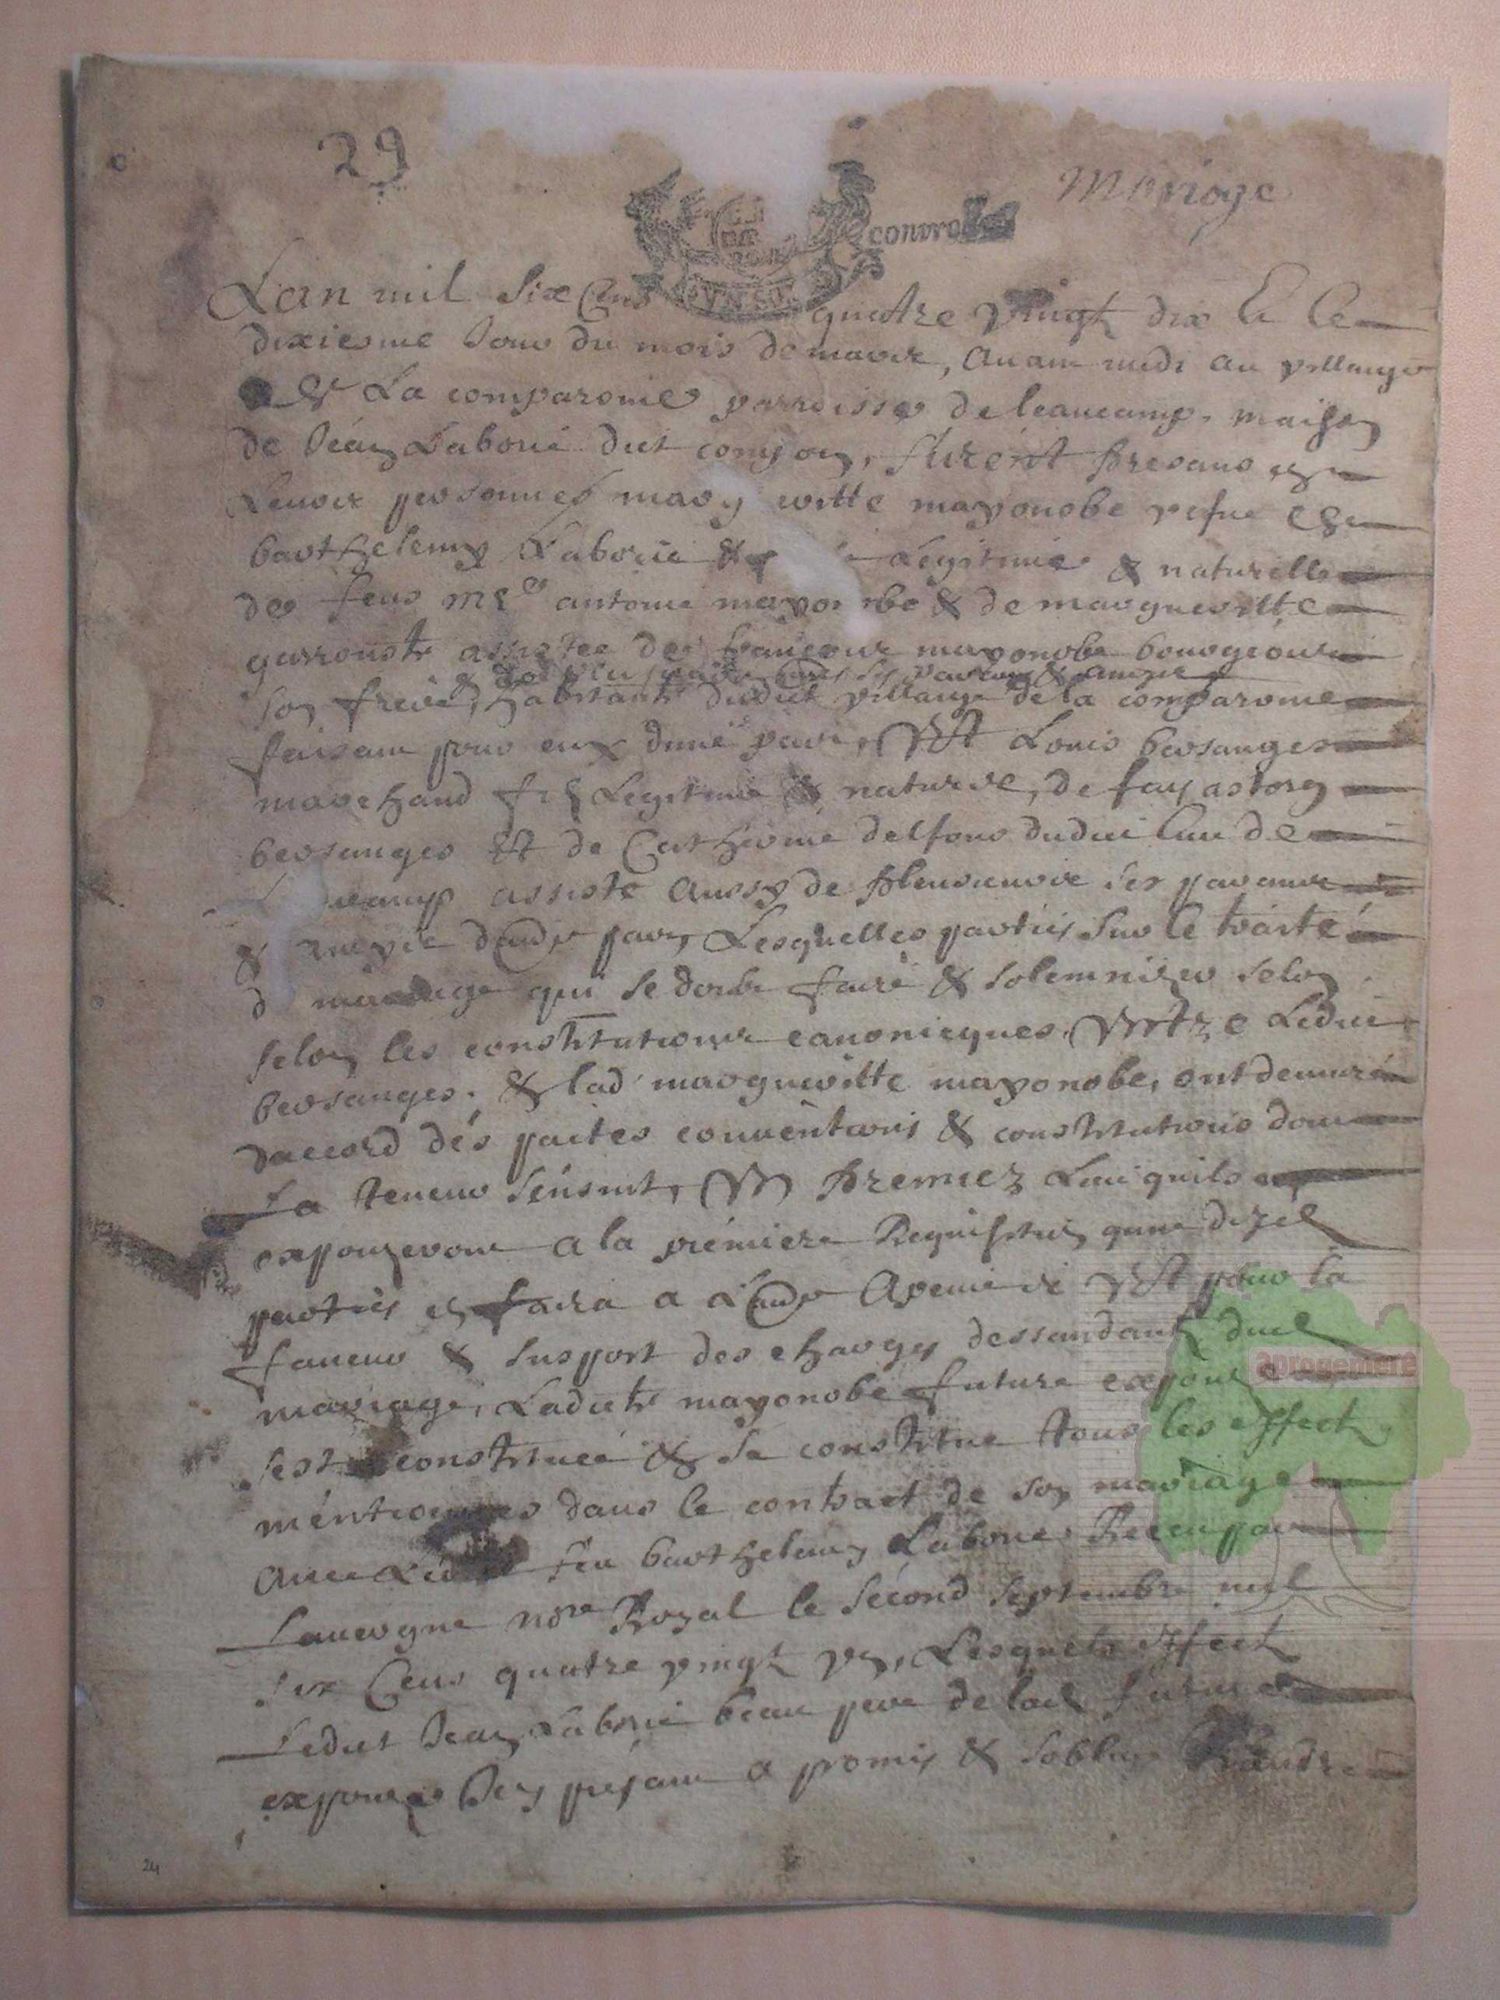 29
Mariage
controlle
Lan mil Six Cens quatre vingt dix & le
dixiesme Jour du mois de mars, auant midi au villauge
de La comparonie parroisse de leaucamp, maison
de Jean Laborie dict, furent presans en
Leurs personnes margueritte mayonobe vefue de
barthelemy Laborie & Legitime & naturelle
de feus me antoine mayonobe & de margueritte
garrouste assistee de francois mayonobe bourgeois
& de ses parens & amys
son frere, habitants dudict villauge de la comparonie
faisans pour eux dune part, Et Louis bersanges
marchand fils Legitime & naturel, de fau astorg
bersanges Et de Catherine delfons dudict lieu de
assisté aussy de pleusieurs ses parans
& amys dautre part, Lesquelles parties sur le traité
d mariage qui se doibt faire & solemnizer selon
selon les constitutions canonicques, Entre Ledict
bersanges. & lad margueritte mayonobe, ont demuré
daccord des pactes conuentions & constitutions dont
La teneur sensuit, En premier Lieu quils
expouzeront a la premiere Requisition qune dicel
parties en faira a Lautre Et pour la
faueur & suspport des charges dessandant dud
mariage, Ladicte mayonobe future expouze
sest constituée & se constitue tous les effects
mentionnes dans le contract de son mariage
auec Ledict feu barthelemy Laborie Receu par
Lauergne nore Royal le second septembre mil
six Cens quatre vingt un, Lesquels effects
Ledict Jean Laborie beau pere de lad future
expouze Icy presant a promis & soblige Randre
24
aprogemere